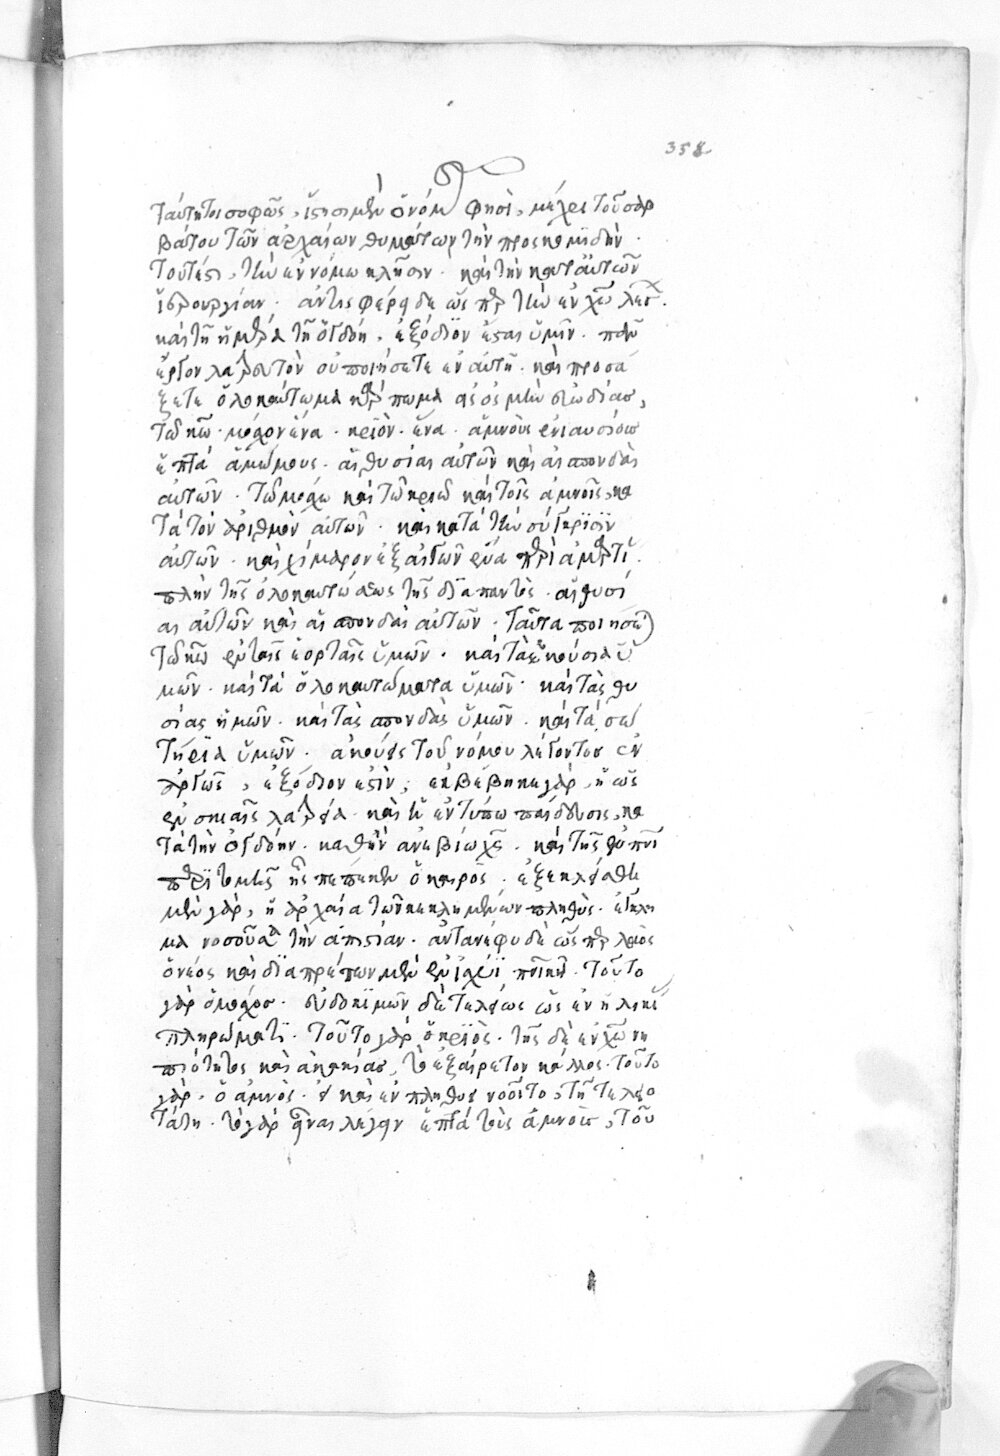 358
ταύτη τοι σοφῶς, ἵστησι μὲν ὁ νόμος φησὶ, μέχρι τοῦ σαβ
βάτου τῶν ἀρχαίων θυμάτων τὴν προσκομιδὴν.
τουτέστι, τὴν ἐν νόμω κλῆσιν. καὶ τὴν κατ' αὐτῶν
ἱερουργίαν. ἀντεισφέρει δὲ ὥσπερ τὴν ἐν χῶ
καὶ τῆ ἡμέρα τῆ ὀγδόη, ἐξόδιον ἔσται ὑμῖν. πᾶν
ἔργον λατρευτὸν οὐ ποιήσετε ἐν αὐτῆ. καὶ προσά
ξετε ὁλοκαύτωμα κάρπωμα εἰς ὀσμὴν εὐωδίας,
τῶ κῶ. μόσχον ἕνα. κριὸν ἕνα. ἀμνοὺς ἐνιαυσίους
ἑπτὰ ἀμώμους. αἱ θυσίαι αὐτῶν καὶ αἱ σπονδαὶ
αὐτῶν. τῶ μόσχω καὶ τῶ κριῶ καὶ τοῖς ἀμνοῖς, κα
τὰ τὸν ἀριθμὸν αὐτῶν. καὶ κατὰ τὴν σύγκρισιν
αὐτῶν. καὶ χίμαρον ἐξ αἰγῶν ἕνα περὶ ἁμαρτί.
πλὴν τῆς ὁλοκαυτώσεως τῆς διαπαντὸς. αἱ θυσί
αι αὐτῶν καὶ αἱ σπονδαὶ αὐτῶν. ταῦτα ποιήσε
τῶ κῶ ἐν ταῖς ἑορταῖς ὑμῶν. καὶ τὰ ἑκούσια ὑ
μῶν. καὶ τὰ ὁλοκαυτώματα ὑμῶν. καὶ τὰς θυ
σίας ὑμῶν. καὶ τὰς σπονδὰς ὑμῶν. καὶ τὰ σω
τήρια ὑμῶν. ἀκούεις τοῦ νόμου λέγοντος ἐν
αργῶς, ἐξόδιον ἐστὶν; ἐκβέβηκε γὰρ, ἡ ὡς
ἐν σκιαῖς λατρεία. καὶ ἡ ἐν τύπω παίδευσις, κα
τὰ τὴν ὀγδόην. καθ' ἣν ἀνεβίω χς. καὶ τῆς
περιτομῆς ἧς πέπαυται ὁ καιρὸς. ἐξεκλείσθη
μὲν γὰρ, ἡ ἀρχαία τῶν κεκλημένων πληθὺς.
μα νοσοῦσα τὴν ἀπιστίαν. ἀντανέφυ δὲ ὥσπερ λαὸς
ὁ νέος καὶ διαπρέπων μὲν ἐν ἰσχύϊ. τοῦτο
γὰρ ὁ μόσχος. εὐδοκιμῶν δὲ τελείως ὡς ἐν ἡλικί
πληρώματι. τοῦτο γὰρ ὁ κριὸς. τῆς δὲ ἐν χῶ νη
πιότητος καὶ ἀκακίας, τὸ ἐξαίρετον κάλλος. τοῦτο
γὰρ ὁ ἀμνὸς. καὶ ἐν πληθύϊ νοοῖτο, τῆ τελεο
τάτη. τὸ γὰρ εἶναι λέγειν ἑπτὰ τοὺς ἀμνοὺς, τοῦ